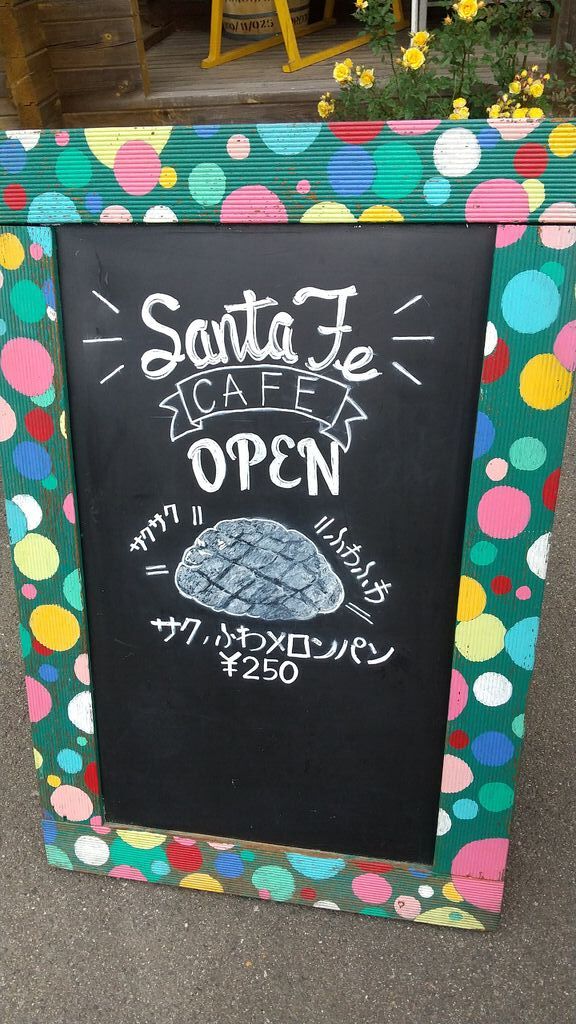 00/11/025
Santa Fe
CAFE
OPEN
サクサク
ふわふわ
サク,ふわメロンパン
¥250